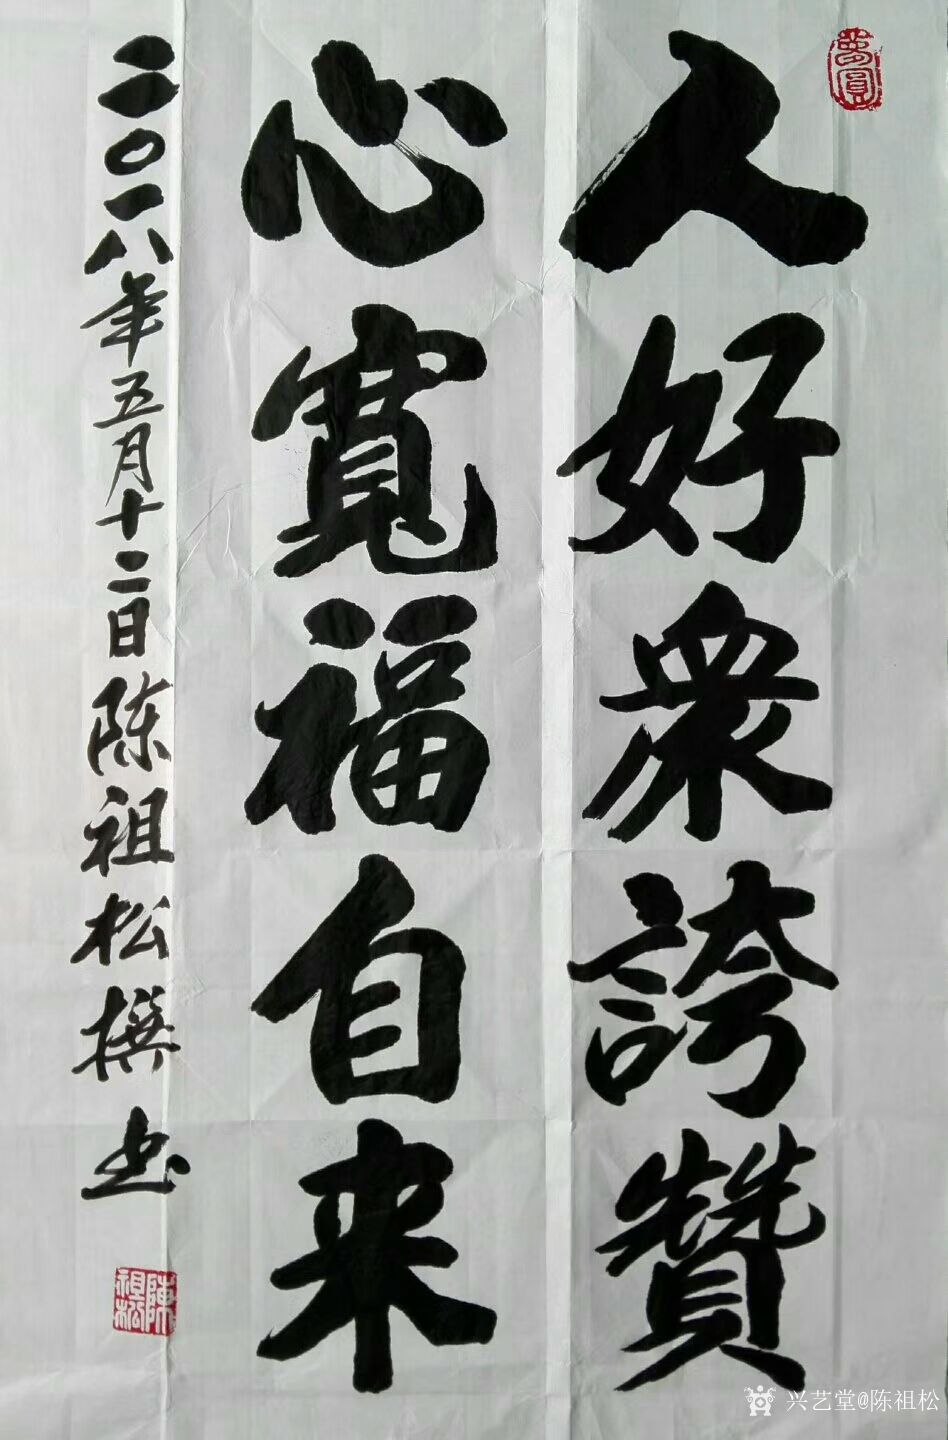 夢圓
人好衆誇贊
心寬福自来
二〇一八年五月十二日陈祖松撰书
陳祖松
兴艺堂@陈祖松